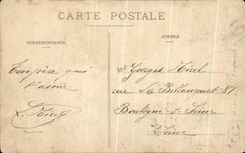 CARTE POSTALE
CORRESPONDANCE
ADRESSE
Ton père qui
t'aime
Mr Georges
rue de Billancourt 81
Boulogne s/ Seine
Seine